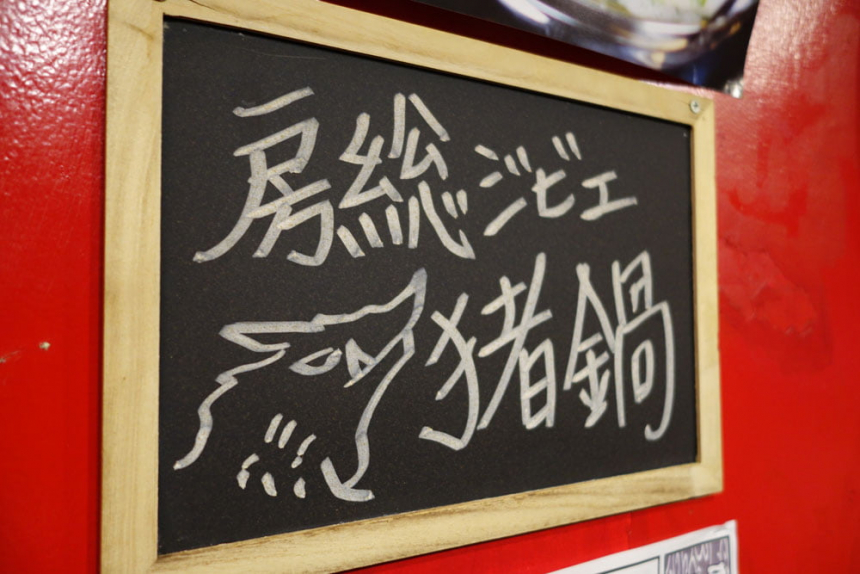 房総ジビエ
猪鍋